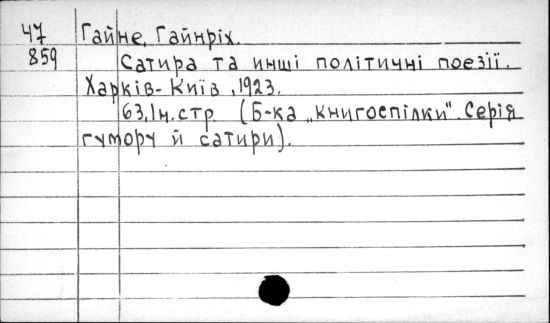 47 Гайне, Гайнріх.
859 Сатира та инші політичні поезії.
Харків-Київ, 1923.
63,1н.стр. (Б-ка „Книгоспілки". Серія
гумору й сатири).